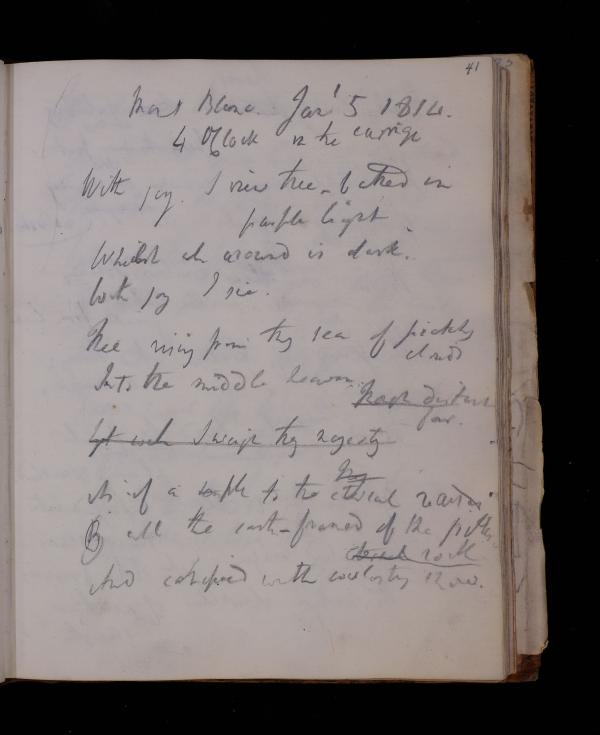 41
Mont Blanc. Jan' 5 1814.
4 O'Clock in the carriage
With joy I view thee bathed in
purple light
Whilst all around is dark.
With joy I see.
Thee rising from thy sea of
cloud
Into the middle heaven
Though distant
far.
I thy majesty
As if a temple to the
By all the earth framed of the
rock
And with everlasting snow.